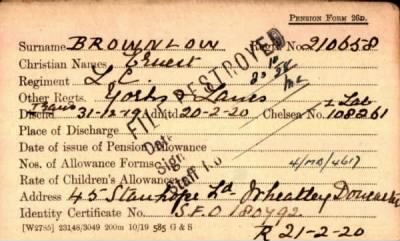 PENSION FORM 26D.
Surname BROWNLOW Regtl No. 210658
Christian Names Ernest
Regiment L.C.
Other Regts. Yorks Lancs
Trans
Disch'd 31-12-19 Admitd 20-2-20 Chelsea No. 108261
Place of Discharge
Date of issue of Pension Allowance
Nos. of Allowance Forms 4/MA/4617
Rate of Children's Allowance
Address 45 Stanhope Rd. Wheatley Doncaster
Identity Certificate No. S.F.O 180492
[W2785] 23148/3049 200m 10/19 585 G & S
R 21-2-20
FILE DESTROYED
Date
Sign
Staff